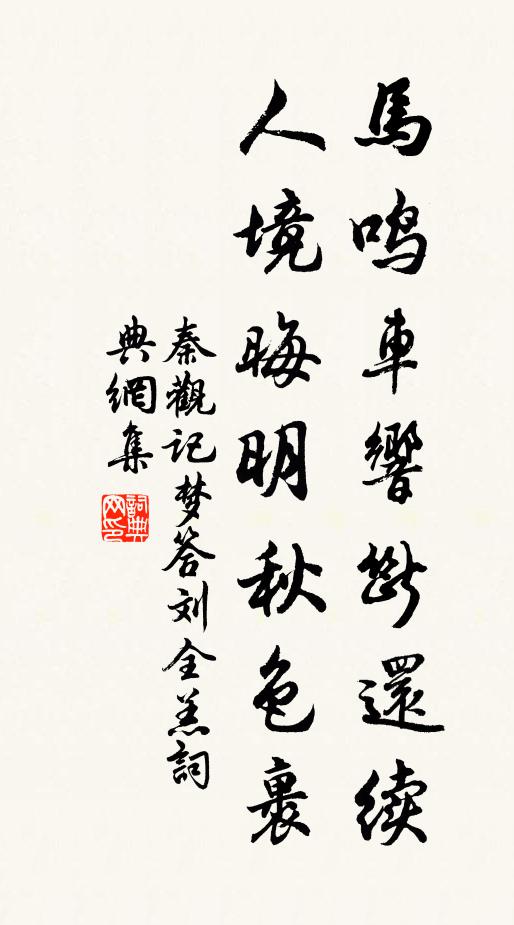 馬鳴車響斷還續
人境晦明秋色裏
秦觀記梦答刘全美詞
典網集
詞典网印